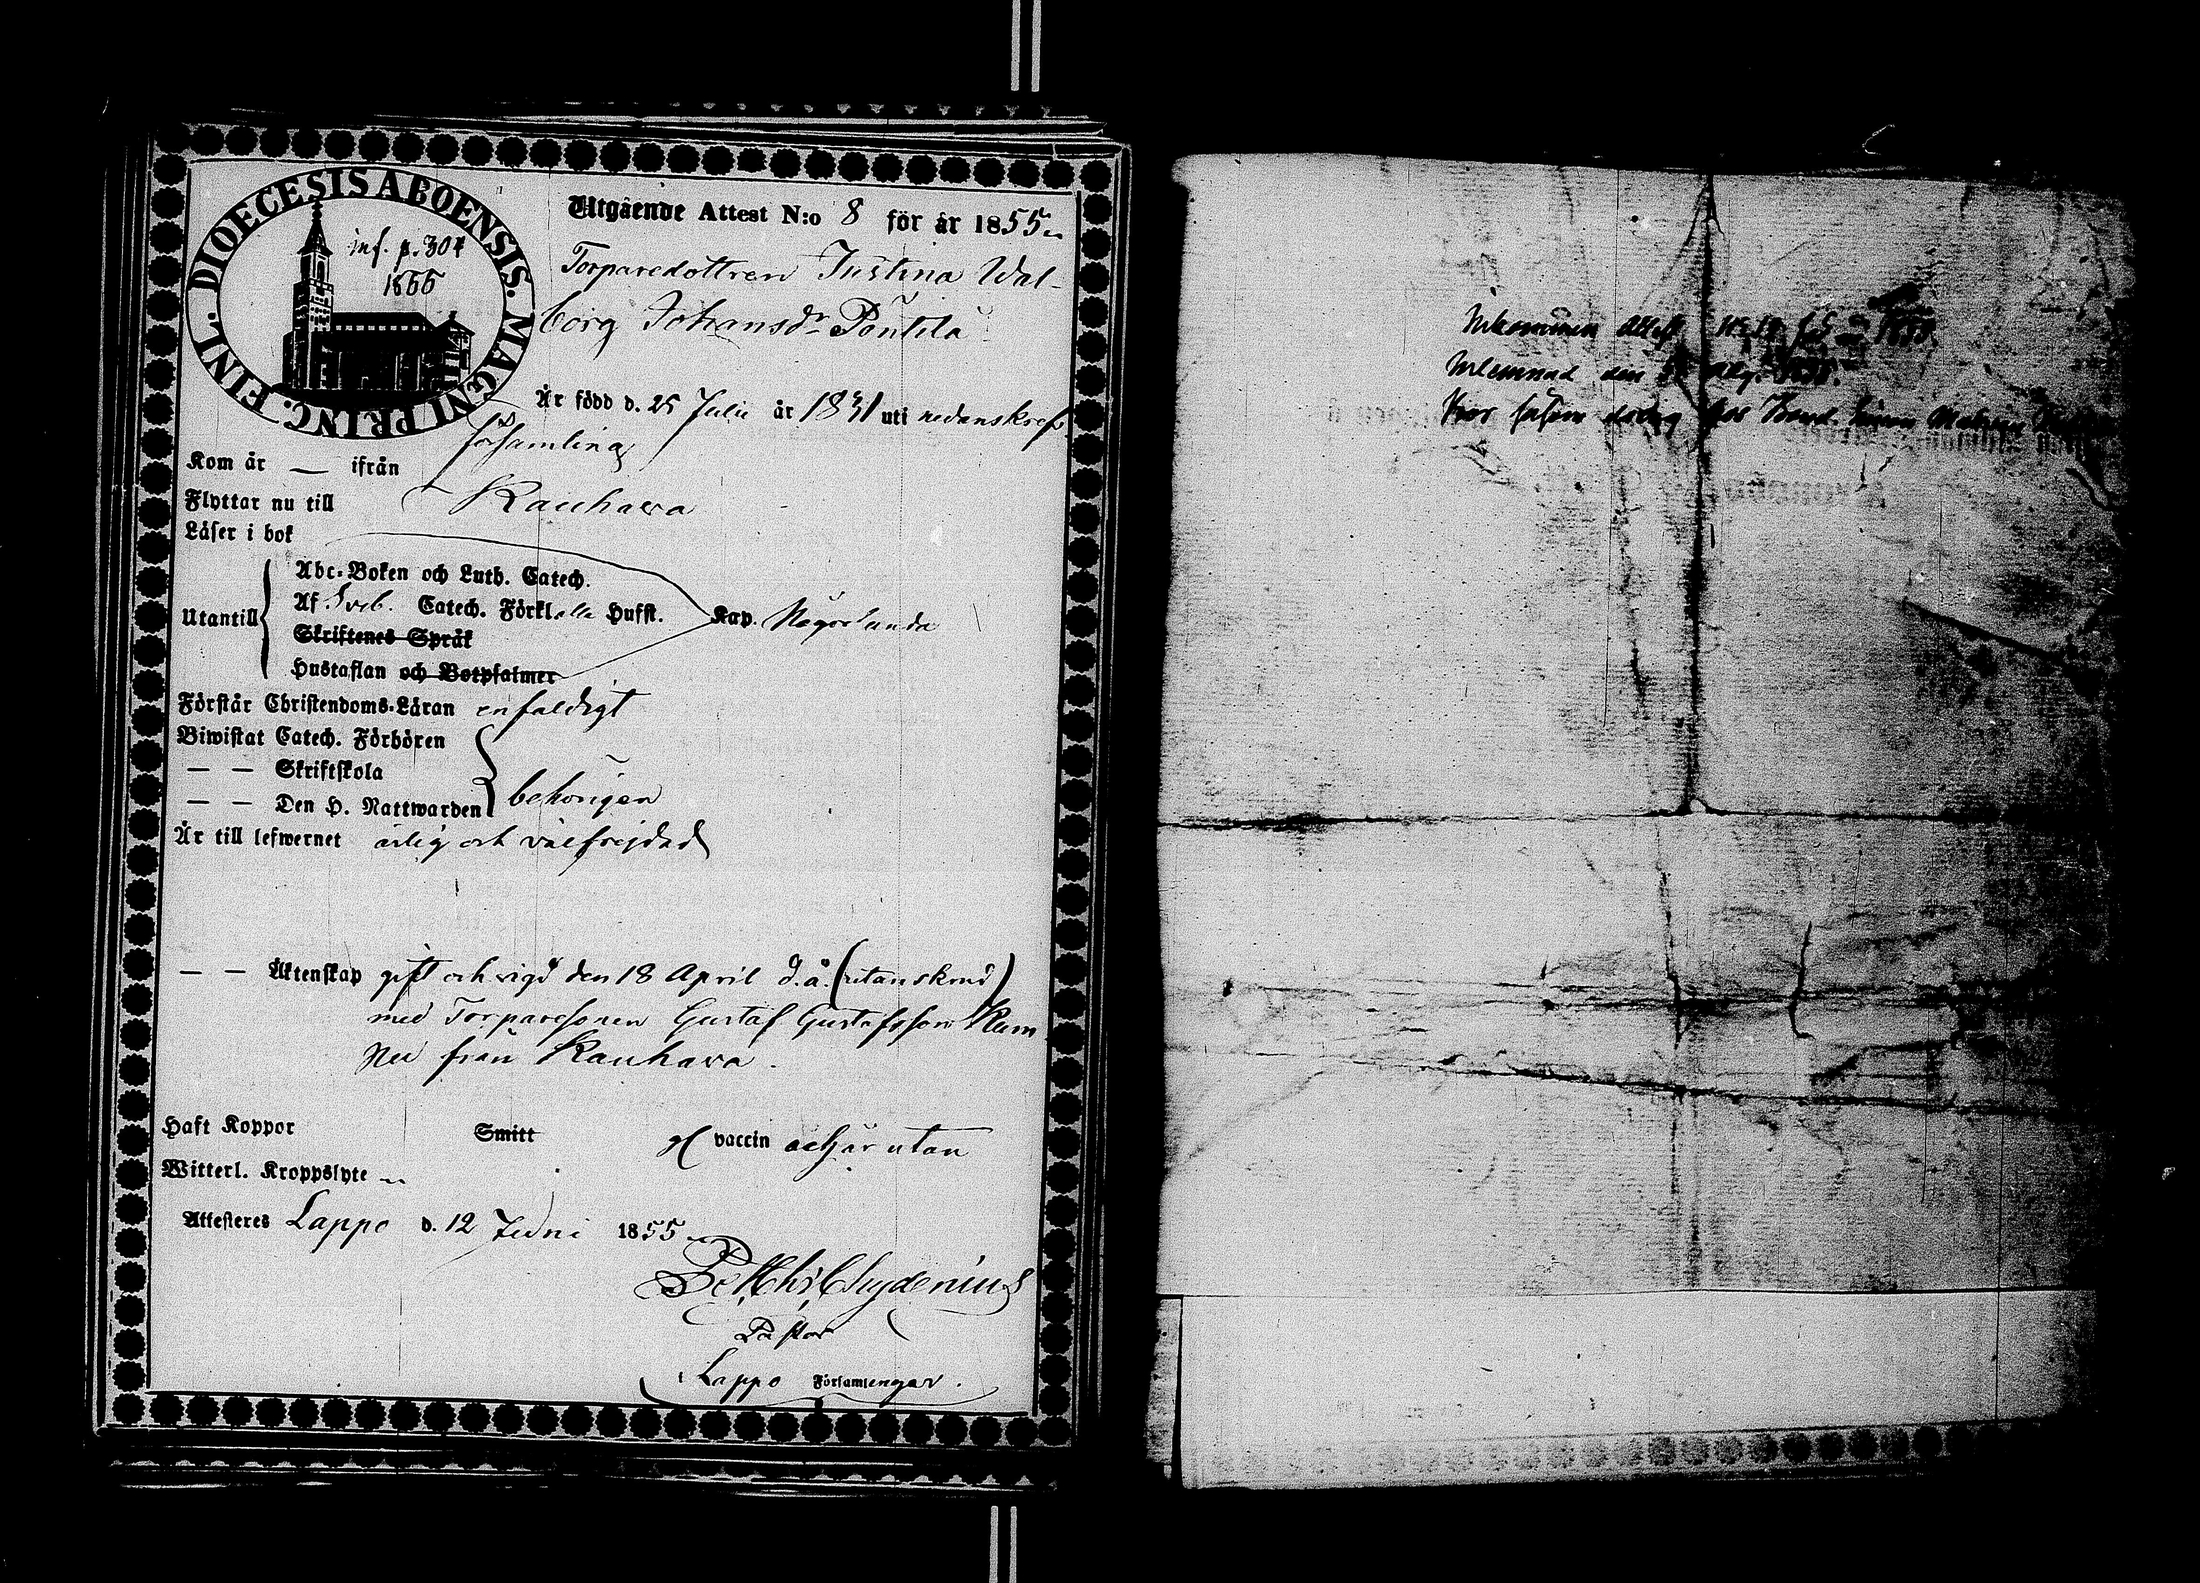 DIOECESIS ABOENSIS. MAGNI PRINC. FINL.
inf. p. 304
1866
Utgående Attest N:o 8 för år 1855
Torparedottren Justina Wal-
borg Johansdr Pöntilä
Är född d. 25 Julii år 1831 uti nedanskrefs
församling
Kom år — ifrån
Flyttar nu till Kauhava
Läser i bok
Utantill
Abc-Boken och Luth. Catech.
Af Sveb. Catech. Förkl alla Hufst.
Skriftenes Språk
Hustaflan och Botpsalmer
Kap. Någorlunda
Förstår Christendoms-Läran enfaldigt
Biwistat Catech. Förhören
— — Skriftskola
— — Den H. Nattwarden behörigen
Är till lefwernet ärlig och välfrejdad
— — Äktenskap gift och vigd den 18 April d.å. (utanskrud)
med Torparesonen Gustaf Gustafsson
från Kauhava.
Haft Koppor Smitt vaccin utan
Witterl. Kroppslyte
Attesteres Lappo d. 12 Juni 1855
Chydenius
Pastor
Lappo Församlengar.
Inkommen Attest
Inlemnad den